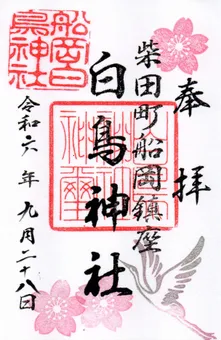 奉拝
柴田町船岡鎮座
白鳥神社
令和六年九月二十八日
船岡白鳥神社